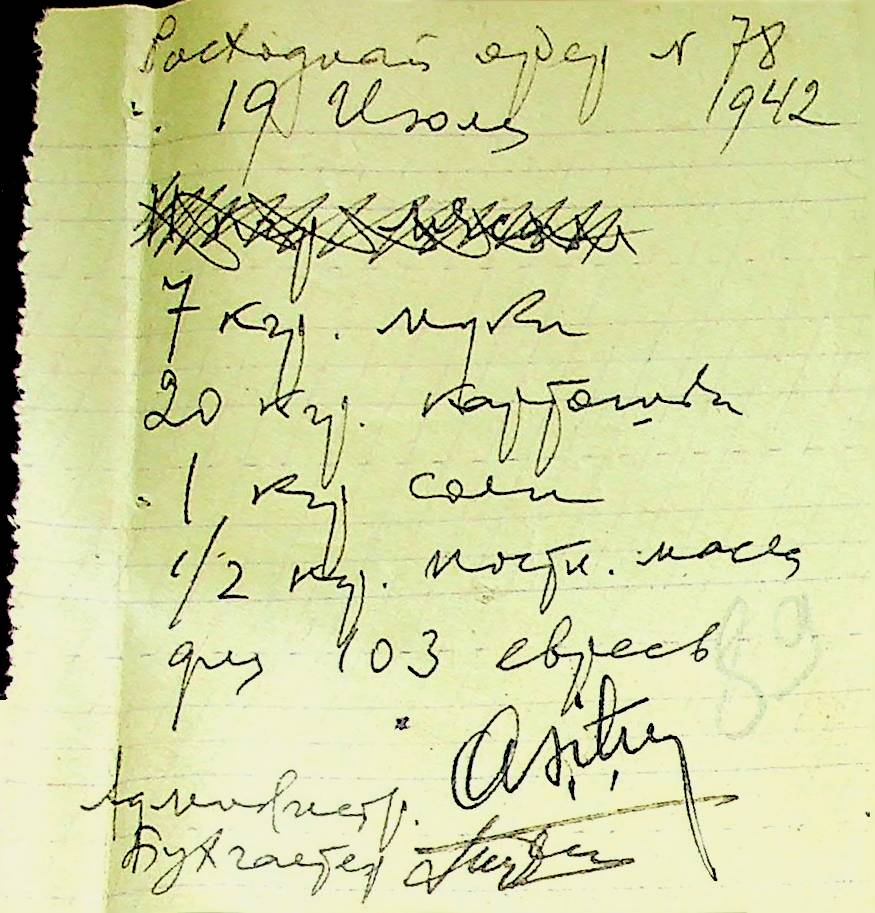 Росходнай ордер N 78
19 Июля 1942
7 кгр. муки
20 кгр. картошки
1 кгр соли
1/2 кгр. постн. масла
для 103 евреев
Администр.
Бухгалтер
89